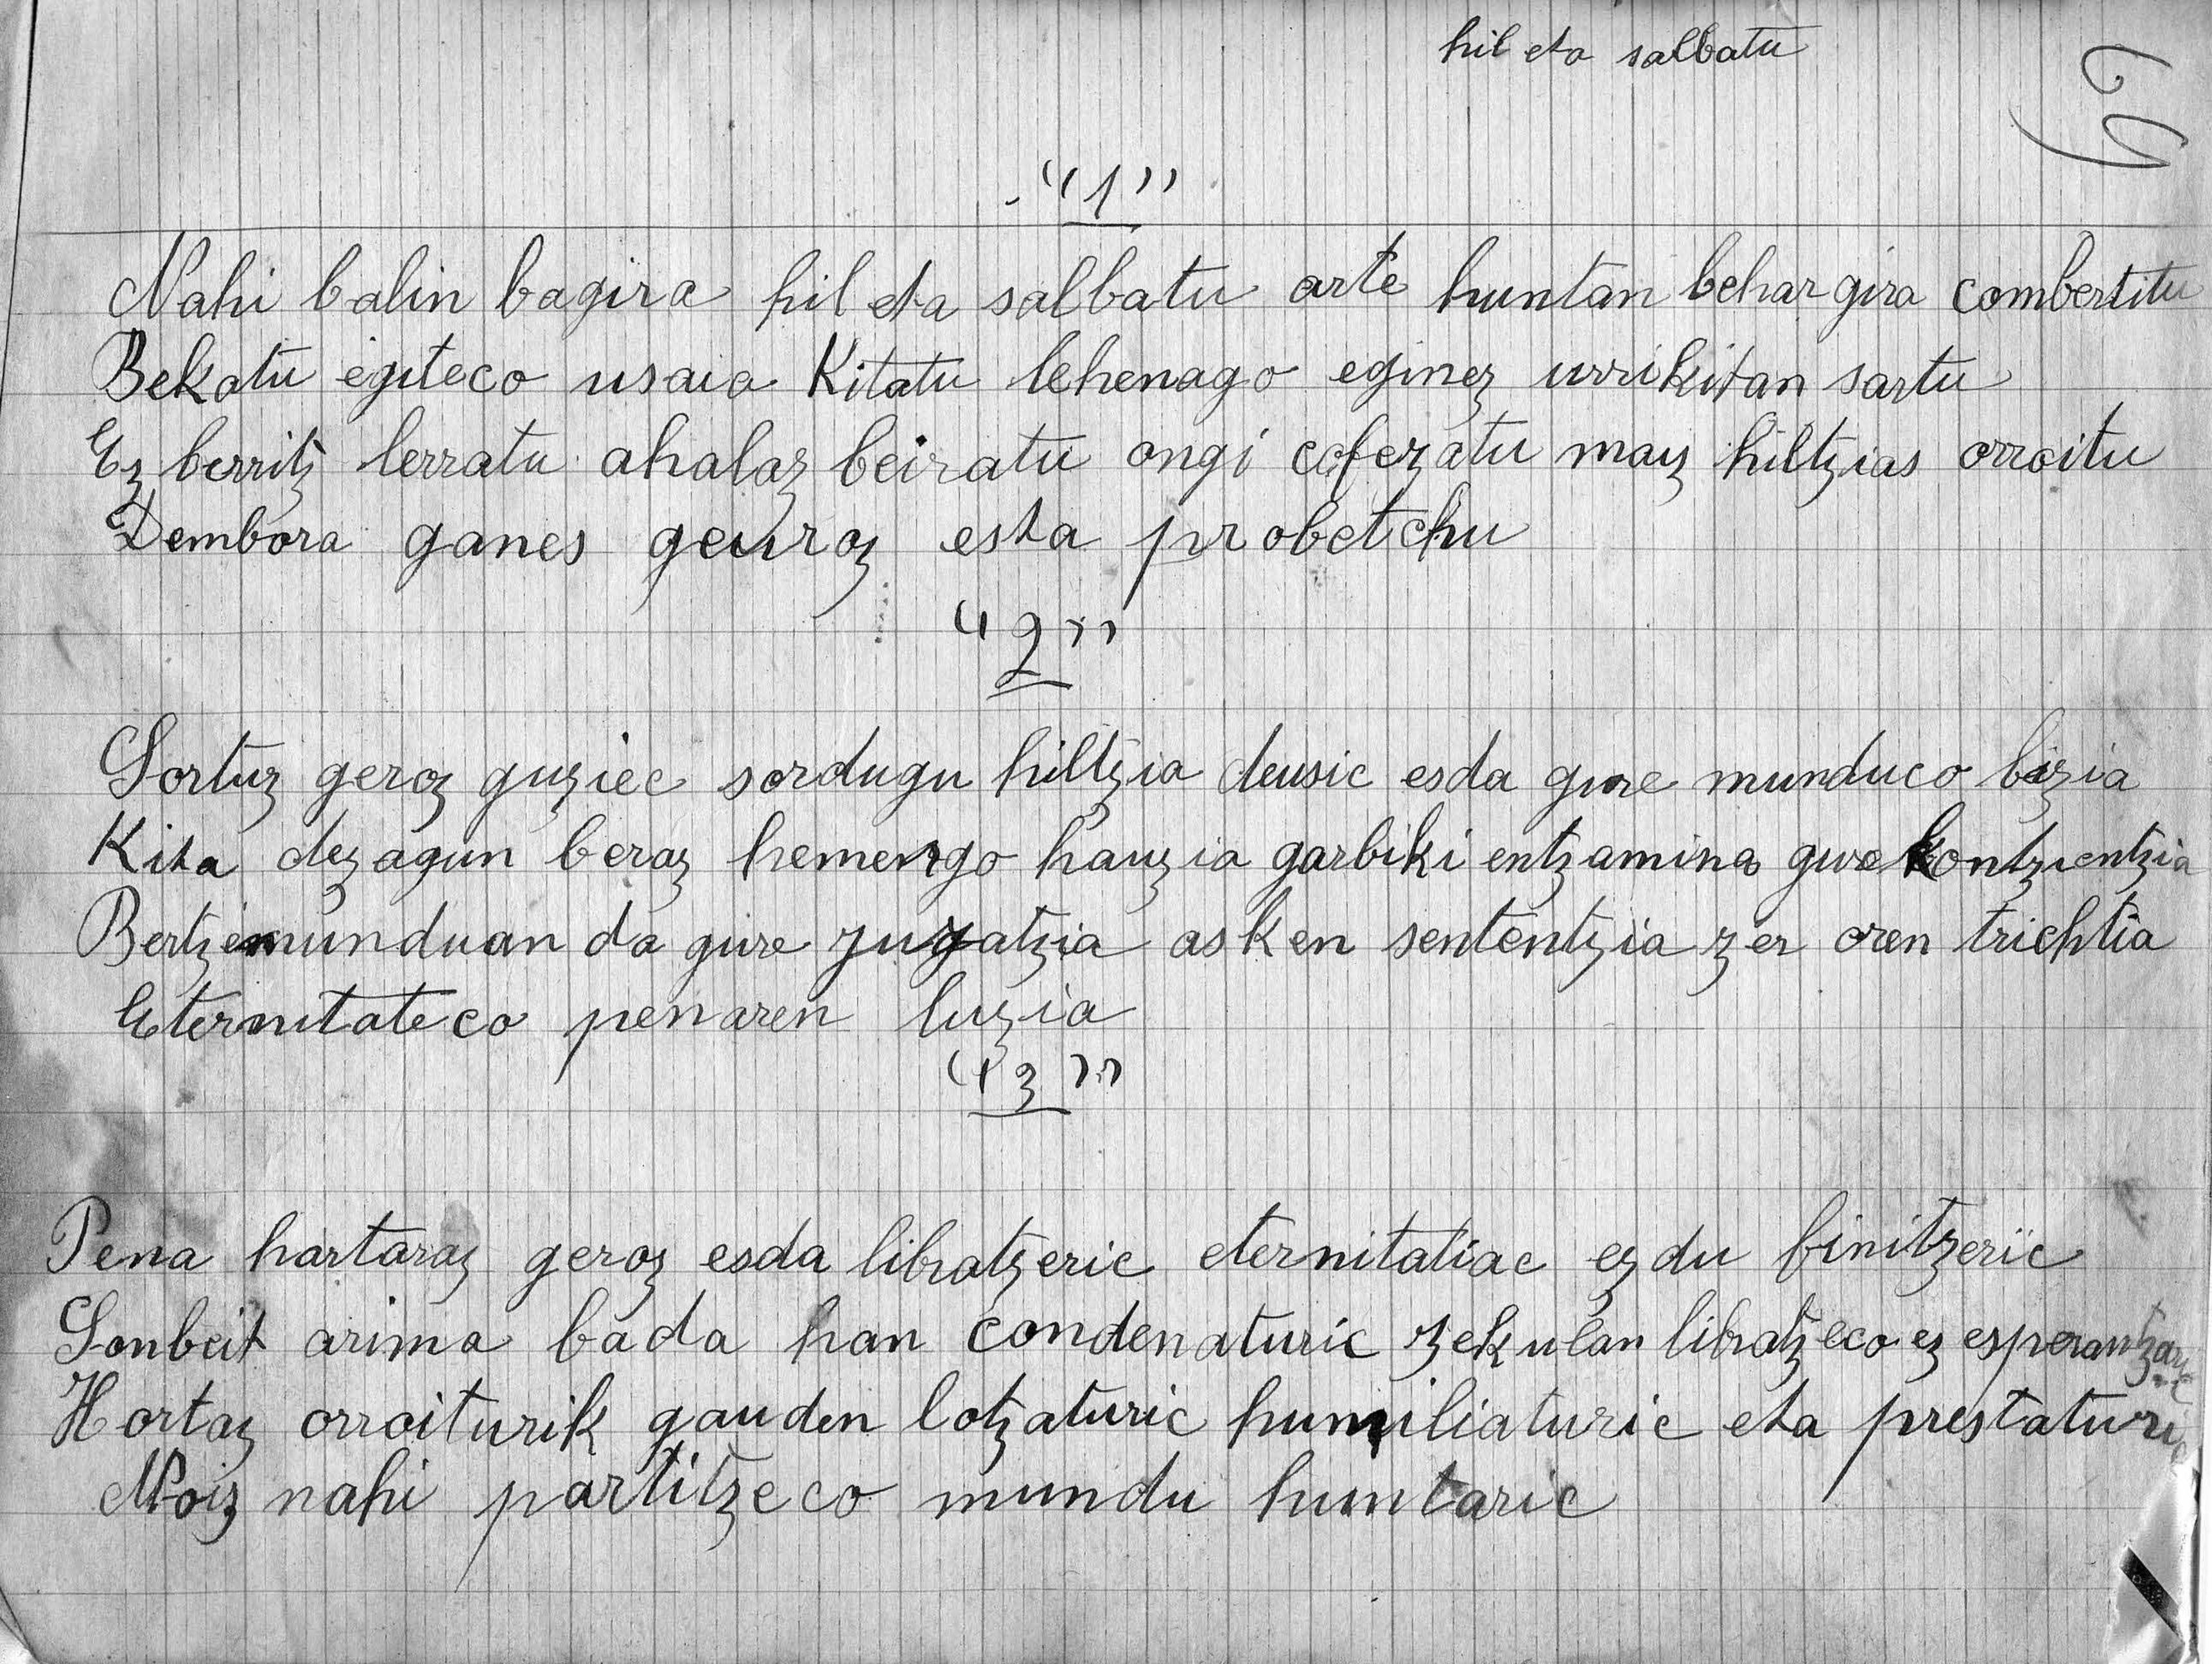 hil eta salbatu
"1"
Nahi balin bagira hil eta salbatu arte huntan behar gira combertitu
Bekatu egiteco usaia Kitatu lehenago eginez urrikitan sartu
Ez berritz lerratu ahalaz beiratu ongi cofezatu mayz hiltzias orroitu
Dembora ganes geuroz esta probetchu
"2"
Sortuz geroz guziec sordugu hiltzia deusic esda gure munduco bizia
Kita dezagun beraz hemengo hauzia garbiki entzamina gure kontzientzia
Bertze munduan da gure yuyatzia asken sententzia zer oren trichtia
Eternitateco penaren luzia
"3"
Pena hartaraz geroz esda libratzeric eternitatiac ez du finitzeric
Sonbeit arima bada han condenaturic zekulan libratzeco ez esperantzaric
Hortaz orroiturik gauden lotzaturic humiliaturic eta prestaturic
Noiz nahi partitzeco mundu huntaric